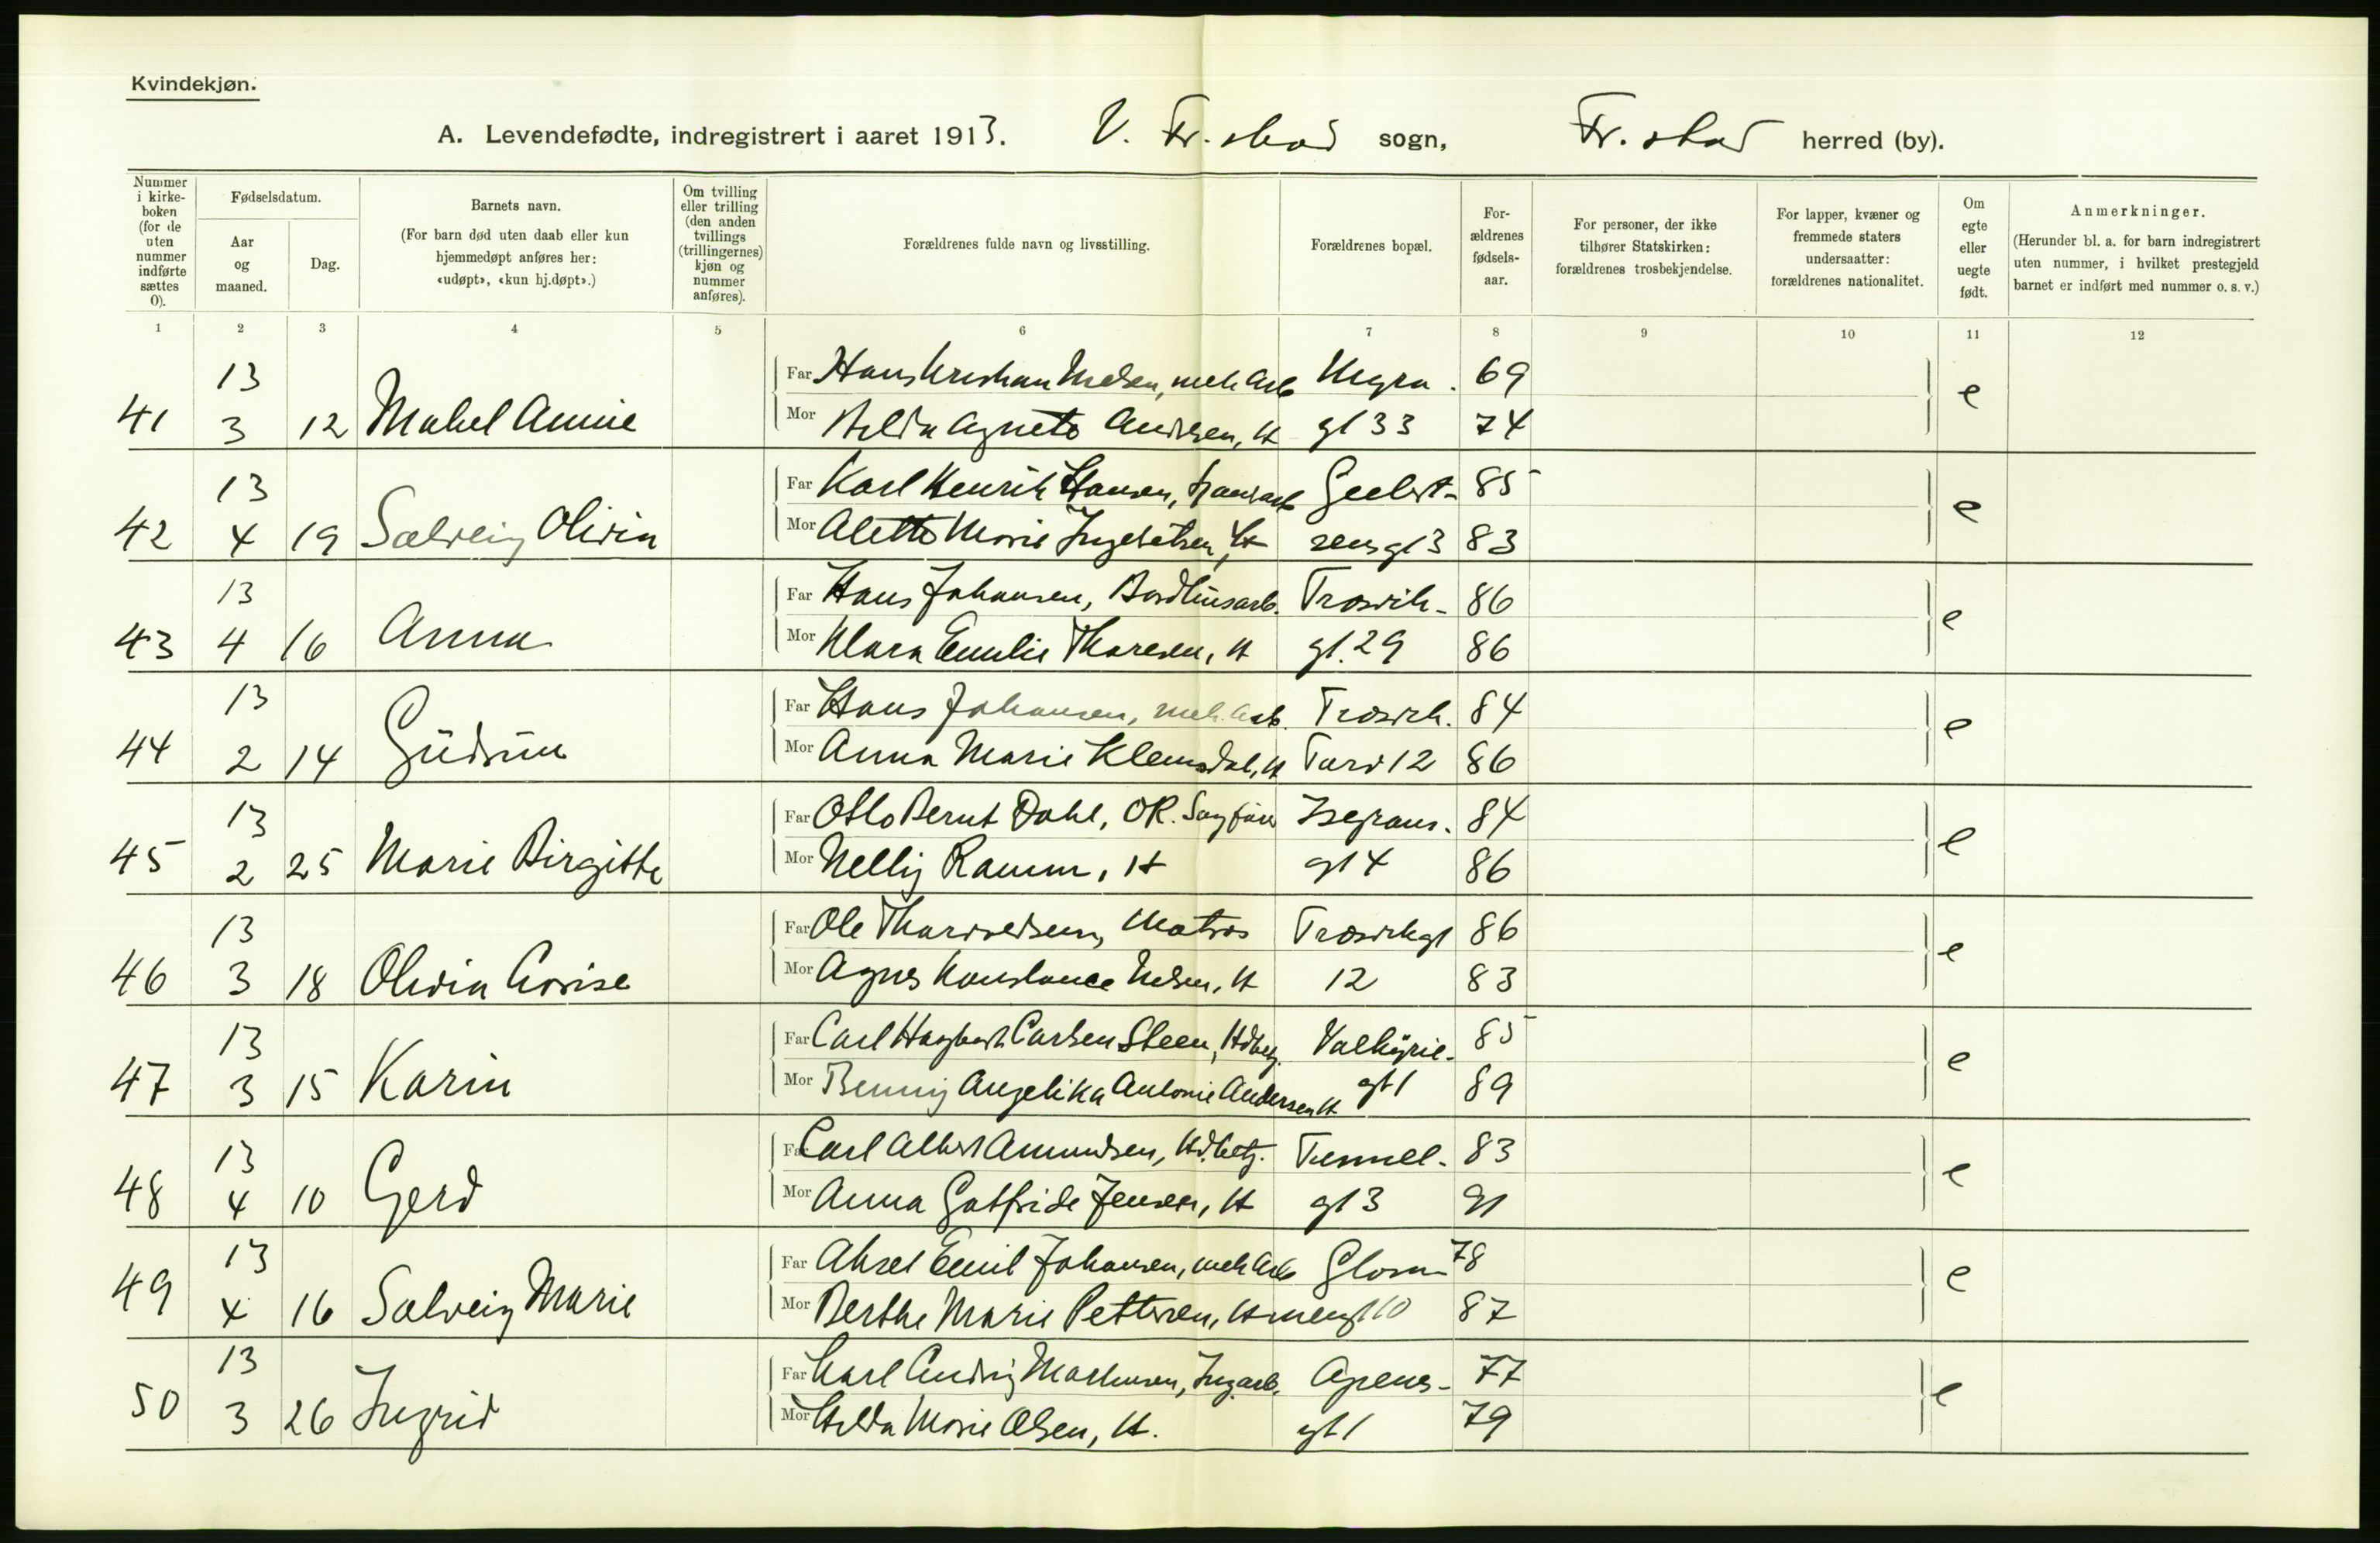 Kvindekjøn.
A. Levendefødte, indregistrert i aaret 1913. V. Fr.stad sogn, Fr.stad herred (by).
Nummer i kirkeboken (for de uten nummer indførte sættes 0).
Fødselsdatum.
Aar og maaned.
Dag.
Barnets navn.
(For barn død uten daab eller kun hjemmedøpt anføres her: «udøpt», «kun hj.døpt».)
Om tvilling eller trilling (den anden tvillings (trillingernes) kjøn og nummer anføres).
Forældrenes fulde navn og livsstilling.
Forældrenes bopæl.
Forældrenes fødselsaar.
For personer, der ikke tilhører Statskirken: forældrenes trosbekjendelse.
For lapper, kvæner og fremmede staters undersaatter: forældrenes nationalitet.
Om egte eller uegte født.
Anmerkninger.
(Herunder bl. a. for barn indregistrert uten nummer, i hvilket prestegjeld barnet er indført med nummer o. s. v.)
1 2 3 4 5 6 7 8 9 10 11 12
13 Far Hans Kristian Nielsen, mek Arb 69
41 3 12 Mabel Annie Mor Hilda Agnete Andersen, H gt 33 74 e
13 Far Karl Henrik Hansen, Geelert- 85
42 4 19 Solveig Olivia Mor Alette Marie H sensgt 3 83 e
13 Far Hans Johansen, Bordhusarb. Trosvik- 86
43 4 16 Anna Mor Klara Emilie Thoresen, H gt. 29 86 e
13 Far Hans Johansen, mek. Arb. Trosvik. 84
44 2 14 Gudrun Mor Anna Marie Klemsdal, H Torv 12 86 e
13 Far Otto Bernt Dahl, OR. Sagfører Isegrans. 84
45 2 25 Marie Birgitte Mor Nelly Ramm, H gt 4 86 e
13 Far Ole Thorvaldsen, Matros Trosvikgt 86
46 3 18 Olivia Lovise Mor Agnes Konstance Nilsen, H 12 83 e
13 Far Carl Hagbart Carlsen Steen, Hdbetj. Valkyrie- 85
47 3 15 Karin Mor Benny Angelika Antonie Andersen H gt 1 89 e
13 Far Carl Albert Amundsen, Hd.betj. Tunnel- 83
48 4 10 Gerd Mor Anna Gotfride Jensen, H gt 3 91 e
13 Far Aksel Emil Johansen, mek Arb Glom- 78
49 4 16 Solveig Marie Mor Berthe Marie Pettersen, H mengt 10 87 e
13 Far Karl Andrias Mathisen, Apenes- 77
50 3 26 Ingrid Mor Hilda Marie Olsen, H. gt 1 79 e